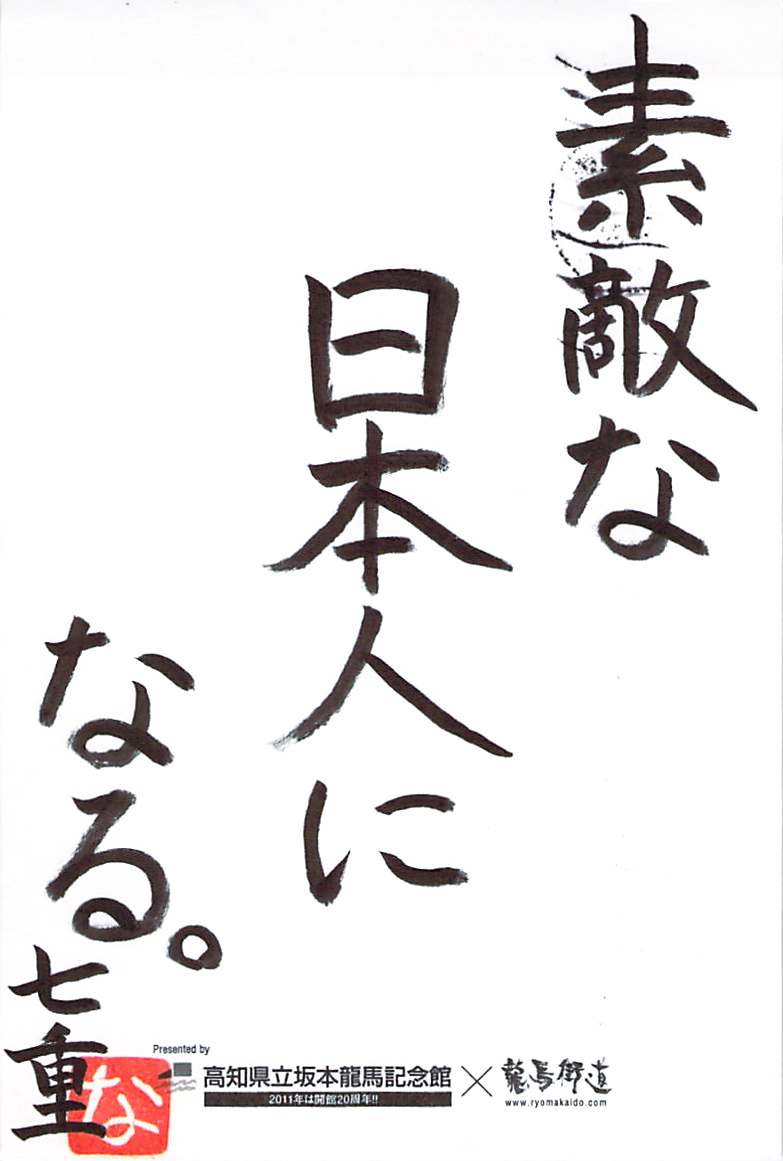 素敵な
日本人に
なる。
七重
な
Presented by
高知県立坂本龍馬記念館
2011年は開館20周年!!
×
龍馬街道
www.ryomakaido.com